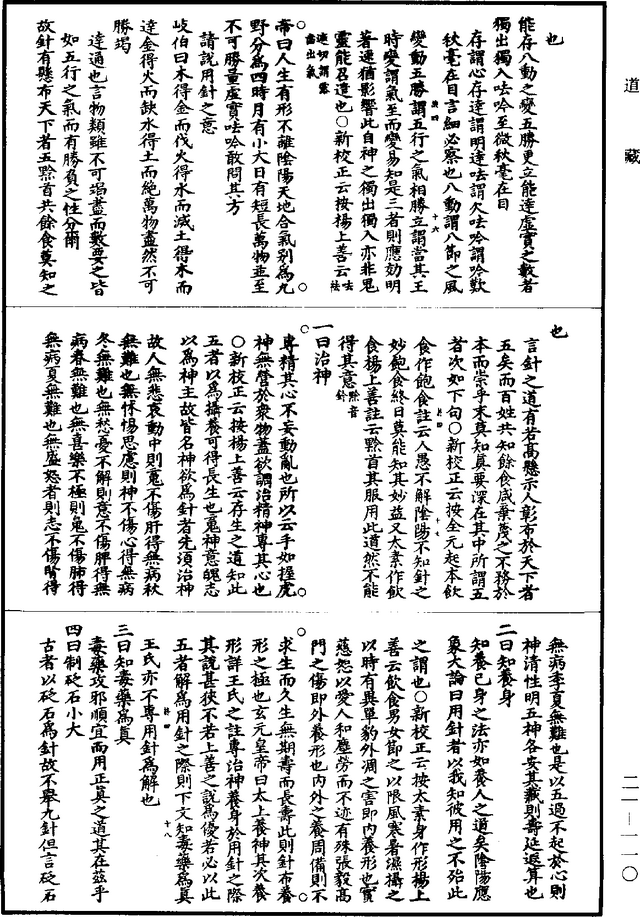 道藏
能存八動之變五勝更立能達虛實之數者
獨出獨入呿吟至微秋毫在目
存謂心存達謂明達呿謂欠呿吟謂吟歎
秋毫在目言細必察也八動謂八節之風
變動五勝謂五行之氣相勝立謂當其王
時變謂氣至而變易知是三者則應効明
著速猶影響此自神之獨出獨入亦非鬼
靈能召遣也○新校正云按楊上善云呿
遣切謂露
齒出氣
帝曰人生有形不離陰陽天地合氣別為九
野分為四時月有小大日有短長萬物並至
不可勝量虛實呿吟敢問其方
請說用針之意
岐伯曰木得金而伐火得水而滅土得木而
達金得火而缺水得土而絕萬物盡然不可
勝竭
達通也言物類雖不可竭盡而數要之皆
如五行之氣而有勝負之性分爾
故針有懸布天下者五黔首共餘食莫知之
也
言針之道有若高懸示人彰布於天下者
五矣而百姓共知餘食咸棄蔑之不務於
本而崇乎末莫知真要深在其中所謂五
者次如下句○新校正云按全元起本飲
食作飽食註云人愚不解陰陽不知針之
妙飽食終日莫能知其妙益又太素作飲
食楊上善註云黔首其服用此道然不能
得其意黔音鈐
一曰治神
專精其心不妄動亂也所以云手如握虎
神無營於衆物蓋欲調治精神專其心也
○新校正云按楊上善云存生之道知此
五者以為攝養可得長生也䰟神意魄志
以為神主故皆名神欲為針者先須治神
故人無悲哀動中則䰟不傷肝得無病秋
無難也無怵惕思慮則神不傷心得無病
冬無難也無愁憂不解則意不傷脾得無
病春無難也無喜樂不極則魄不傷肺得
無病夏無難也無盛怒者則志不傷腎得
無病季夏無難也是以五過不起於心則
神清性明五神各安其藏則壽延遐算也
二曰知養身
知養已身之法亦如養人之道矣陰陽應
象大論曰用針者以我知彼用之不殆此
之謂也○新校正云按太素身作形楊上
善云飲食男女節之以限風寒暑濕攝之
以時有異單豹外凋之害即内養形也實
慈恕以愛人和塵勞而不迹有殊張毅高
門之傷即外養形也内外之養周備則不
求生而久生無期壽而長壽此則針布養
形之極也玄元皇帝曰太上養神其次養
形詳王氏之註專治神養身於用針之際
其說甚狹不若上善之說為優若必以此
五者解為用針之際則下文知毒藥為真
王氏亦不專用針為解也
三曰知毒藥為真
毒藥攻邪順宜而用正真之道其在茲乎
四曰制砭石小大
古者以砭石為針故不舉九針但言砭石
二一—一一〇